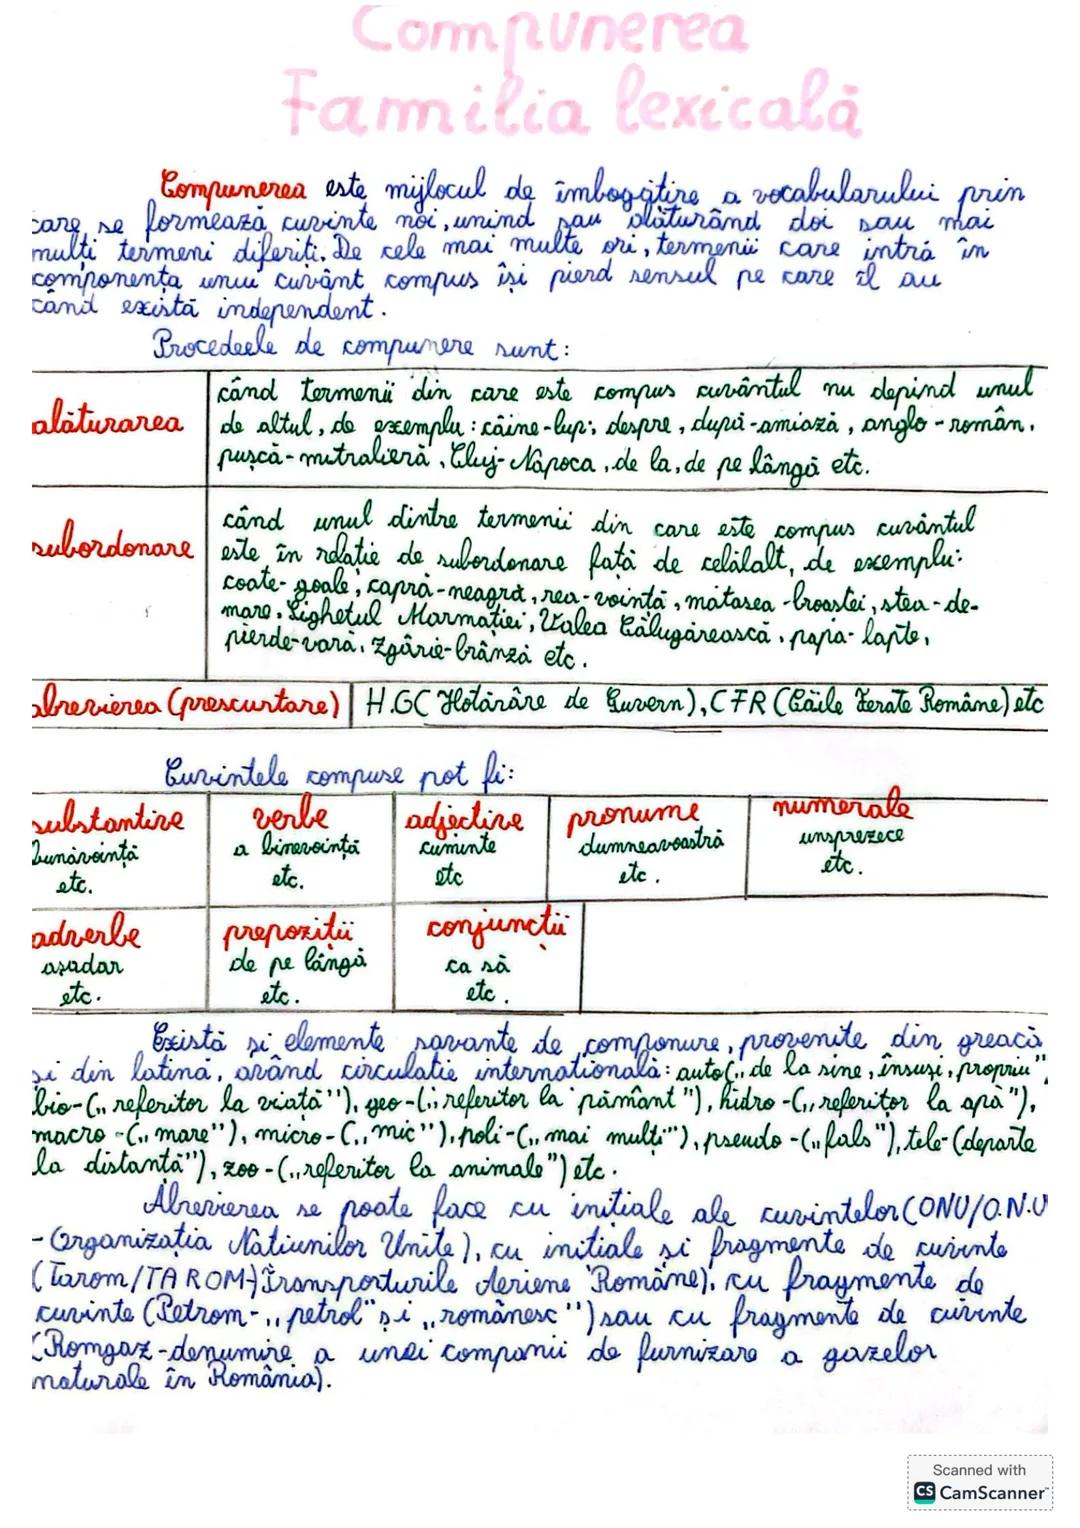 Compunerea
Familia lexicală
Compunerea este mijlocul de îmbogățire a vocabularului prin
care se formează cuvinte noi, unind sau alăturând doi sau mai
mulți termeni diferiți. De cele mai multe ori, termenii care intră în
componența unui cuvânt compus își pierd sensul pe care îl au
când există independent.
Procedeele de compunere sunt:
alăturarea
când termenii din care este compus cuvântul nu depind unul
de altul, de exemplu: câine-lup; despre, după-amiază, anglo-român,
pușcă-mitralieră, Cluj-Napoca, de la, de pe lângă etc.
subordonare
când unul dintre termenii din care este compus cuvântul
este în relație de subordonare față de celălalt, de exemplu:
coate-goale; capră-neagră, rea-voință, mătasea-broastei, stea-de-
mare, Sighetul Marmației, Valea Călugărească, papă-lapte,
pierde-vară, zgârie-brânză etc.
abrevierea (prescurtare)
H.GC Hotărâre de Guvern), CFR (Căile Ferate Române) etc
Cuvintele compuse pot fi:
substantive
verbe
adjective
pronume
numerale
bunăvoință
a binevoință
cuminte
dumneavoastră
unsprezece
etc.
etc.
etc
etc.
etc.
adverbe
prepoziții
conjuncții
așadar
de pe lângă
ca să
etc.
etc.
etc.
Există și elemente savante de componure, provenite din greacă
și din latină, având circulație internațională: auto(„de la sine, însuși, propriu"
bio-(„referitor la viață"), geo-(„referitor la pământ"), hidro-(„referitor la apă"),
macro-(„mare"), micro-(„mic"), poli-(„mai mulți"), pseudo-(„fals"), tele-(departe
la distanță"), zoo-(„referitor la animale") etc.
Abrevierea se poate face cu inițiale ale cuvintelor (ONU/O.N.U
-Organizația Națiunilor Unite), cu inițiale și fragmente de cuvinte
(Tarom/TAROM-)Transporturile Aeriene Române), cu fragmente de
cuvinte (Petrom-„petrol" și „românesc") sau cu fragmente de cuvinte
(Romgaz-denumire a unei companii de furnizare a gazelor
naturale în România).
Scanned with
CS CamScanner